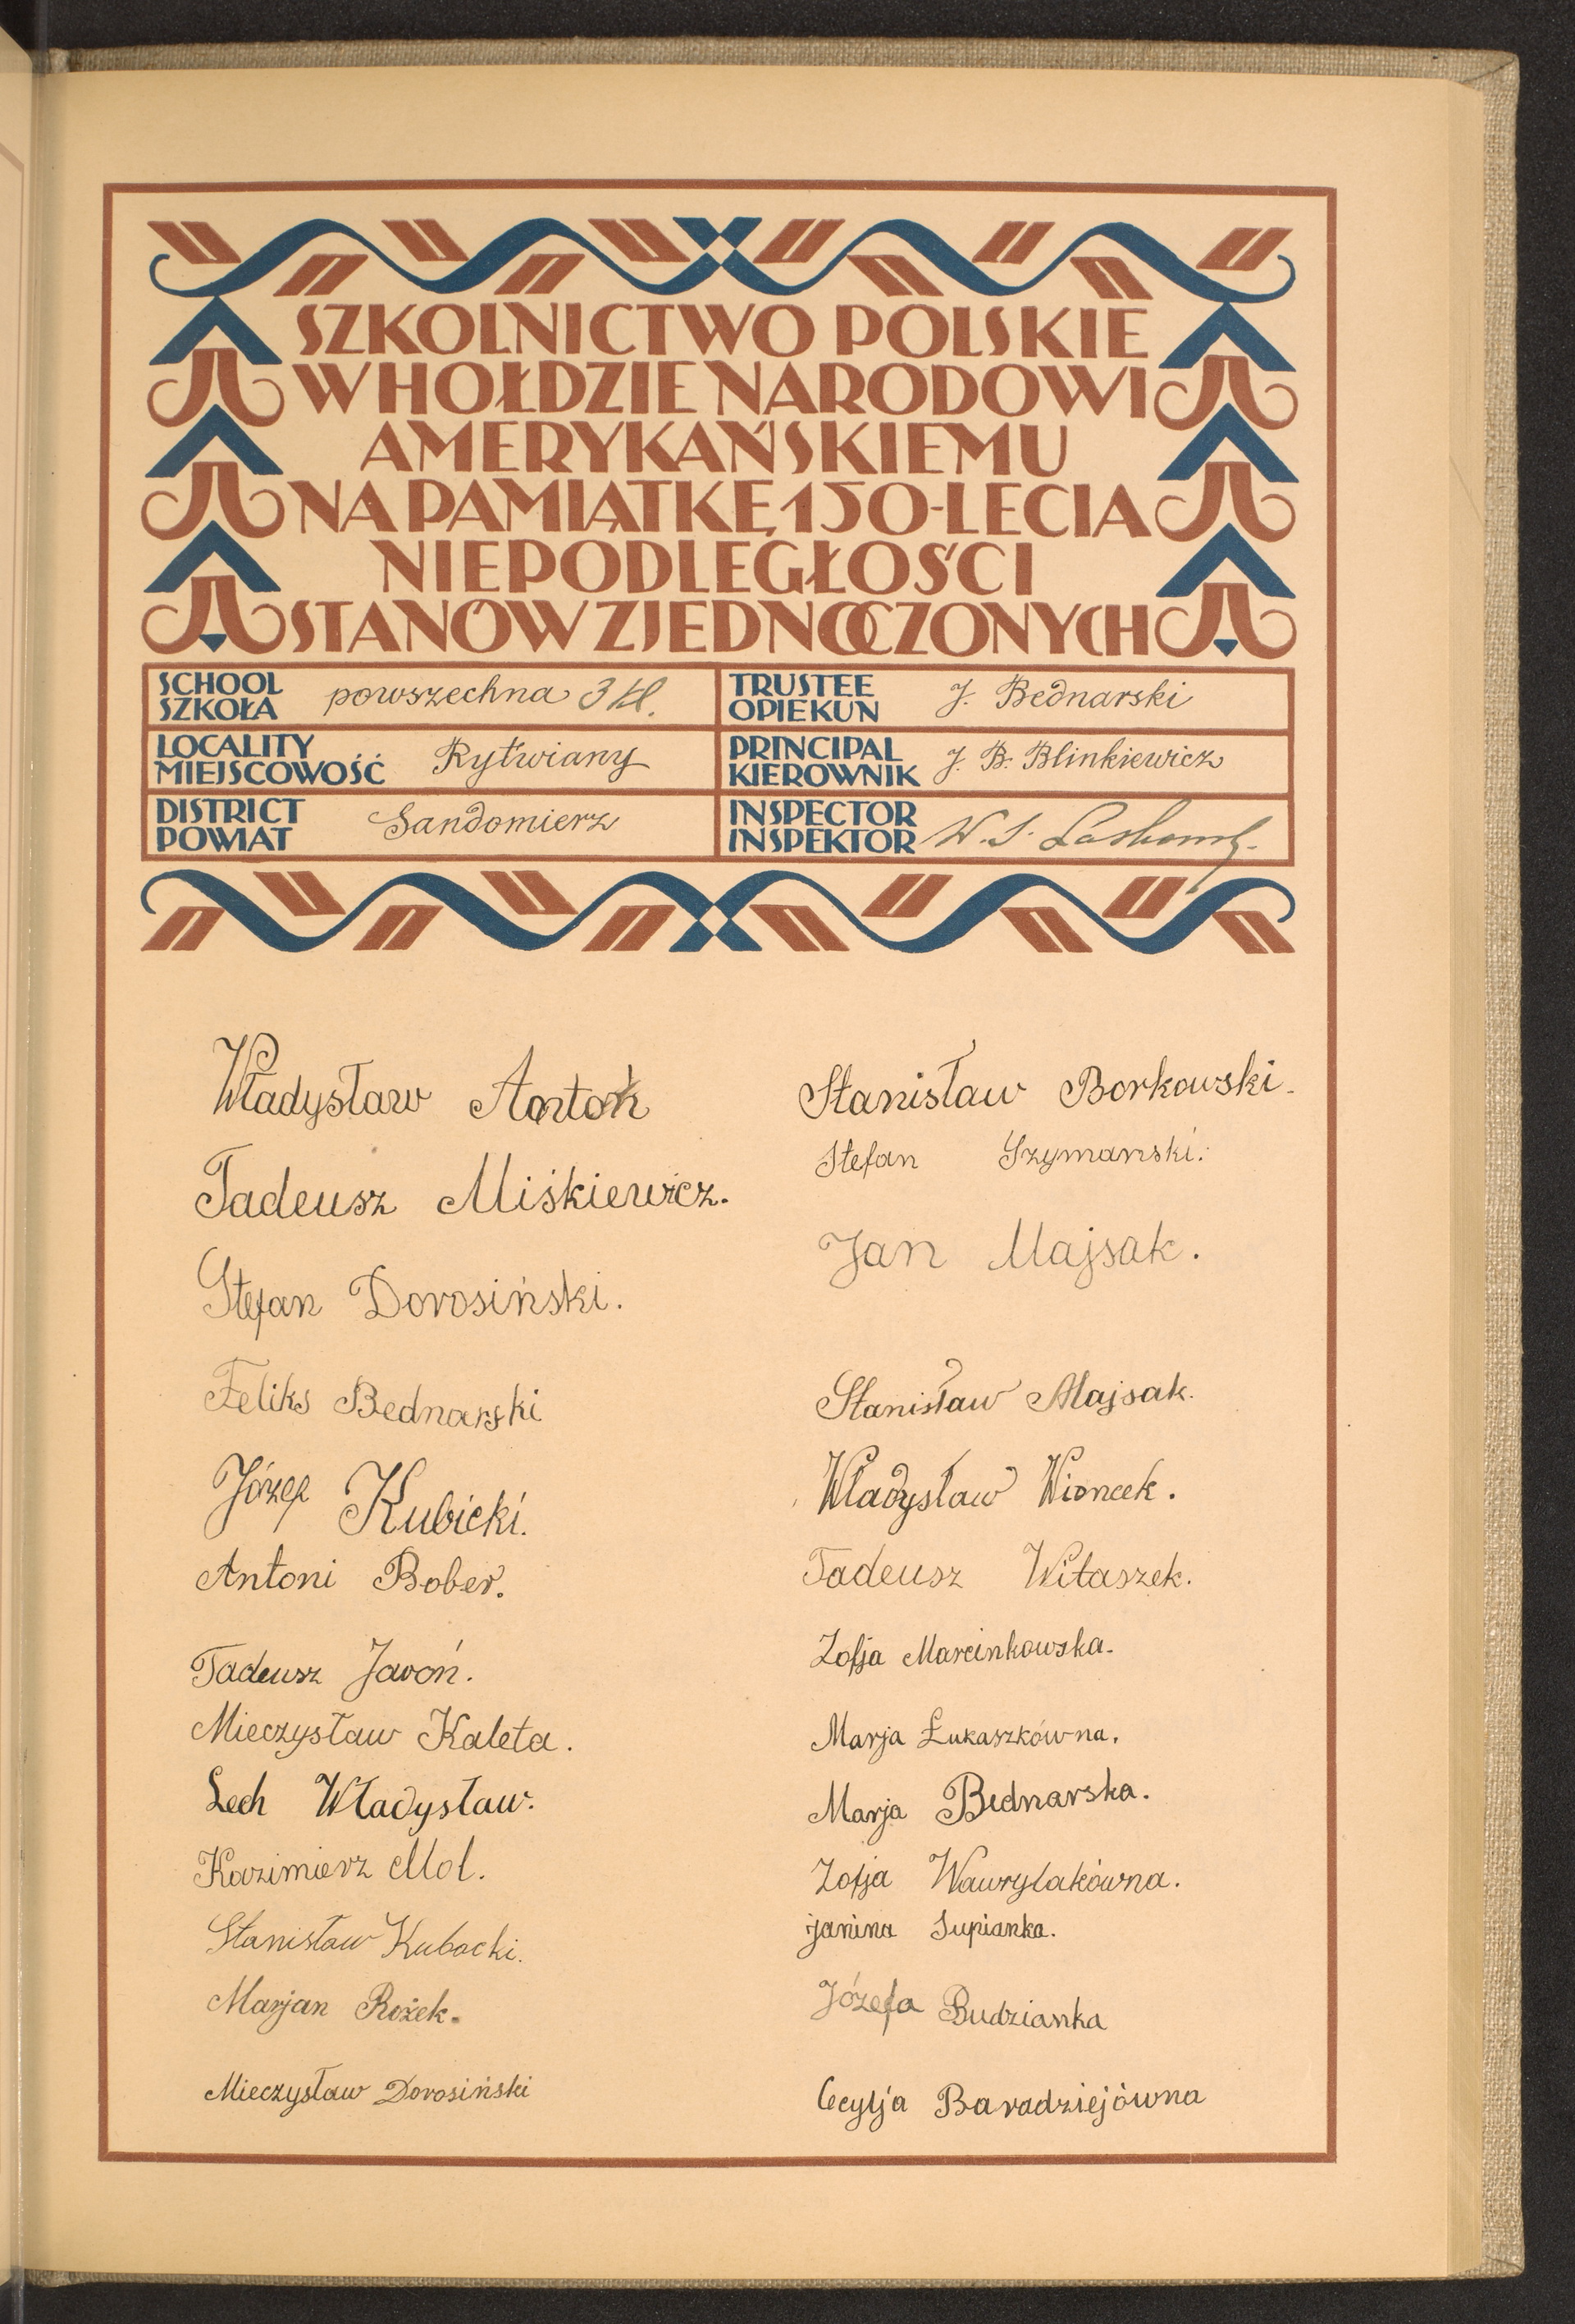 SZKOLNICTWO POLSKIE
W HOŁDZIE NARODOWI
AMERYKAŃSKIEMU
NA PAMIĄTKĘ 150-LECIA
NIEPODLEGŁOŚCI
STANÓW ZJEDNOCZONYCH
SCHOOL
SZKOŁA
powszechna 3 kl.
TRUSTEE
OPIEKUN
J. Bednarski
LOCALITY
MIEJSCOWOŚĆ
Rytwiany
PRINCIPAL
KIEROWNIK
J. B. Blinkiewicz
DISTRICT
POWIAT
Sandomierz
INSPECTOR
INSPEKTOR
W. S.
Władysław Antok
Tadeusz Miśkiewicz.
Stefan Dorosiński.
Feliks Bednarski
Józef Kubicki.
Antoni Bober.
Tadeusz Jaroń.
Mieczysław Kaleta.
Lech Władysław.
Kazimierz Mol.
Stanisław Kubacki.
Marjan Rożek.
Mieczysław Dorosiński
Stanisław Borkowski.
Stefan Szymanski.
Jan Majsak.
Stanisław Majsak.
Władysław Wioncek.
Tadeusz Witaszek.
Zofja Marcinkowska.
Marja Łukaszkówna.
Marja Bednarska.
Zofja Wawrylakówna.
Janina Supianka.
Józefa Budzianka
Cecylja Baradziejówna